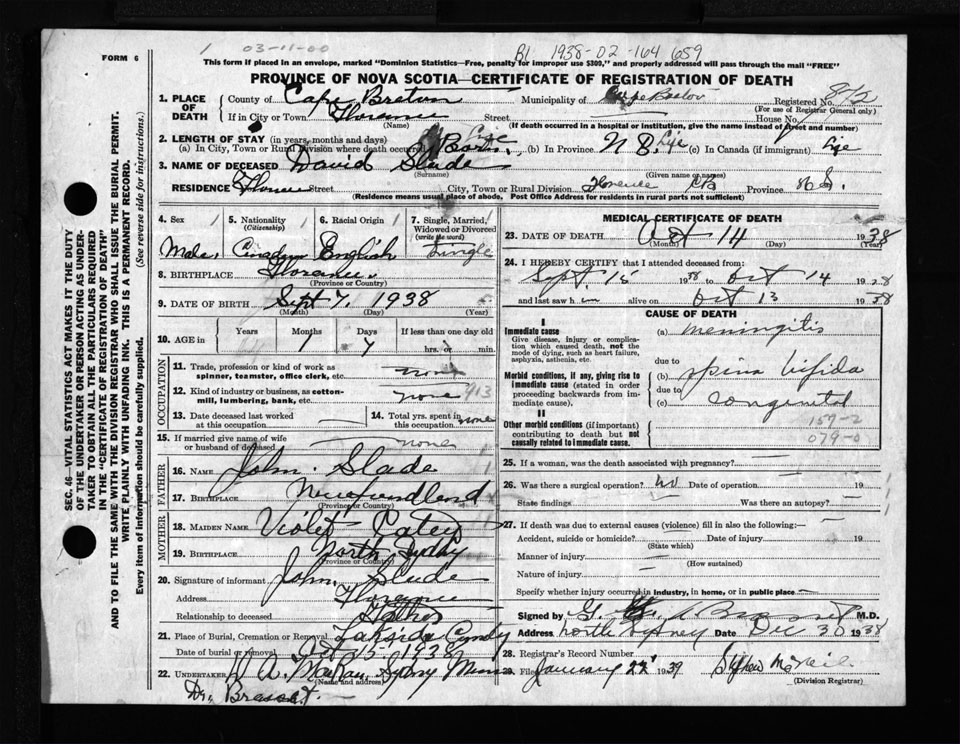 1 03-11-00 1938-02-164 659
FORM 6
This form if placed in an envelope, marked "Dominion Statistics—Free, penalty for improper use $300," and properly addressed will pass through the mail "FREE"
PROVINCE OF NOVA SCOTIA—CERTIFICATE OF REGISTRATION OF DEATH
SEC. 46—VITAL STATISTICS ACT MAKES IT THE DUTY
OF THE UNDERTAKER OR PERSON ACTING AS UNDER-
TAKER TO OBTAIN ALL THE PARTICULARS REQUIRED
IN THE "CERTIFICATE OF REGISTRATION OF DEATH"
AND TO FILE THE SAME WITH THE DIVISION REGISTRAR WHO SHALL ISSUE THE BURIAL PERMIT.
WRITE PLAINLY WITH UNFADING INK. THIS IS A PERMANENT RECORD.
Every item of information should be carefully supplied. (See reverse side for instructions.)
1. PLACE OF DEATH County of Cape Breton Municipality of Cape Breton Registered No.
(For use of Registrar General only)
If in City or Town Florence Street House No.
(Name) (If death occurred in a hospital or institution, give the name instead of street and number)
2. LENGTH OF STAY (in years, months and days)
(a) In City, Town or Rural Division where death occurred Life (b) In Province N S. Life (c) In Canada (if immigrant) Life
3. NAME OF DECEASED David Slade
(Surname) (Given name or names)
RESIDENCE Florence Street City, Town or Rural Division Florence CB Province N S.
(Residence means usual place of abode, Post Office Address for residents in rural parts not sufficient)
4. Sex Male
5. Nationality (Citizenship) Canadian
6. Racial Origin English
7. Single, Married, Widowed or Divorced (write the word) Single
8. BIRTHPLACE Florence
(Province or Country)
9. DATE OF BIRTH Sept 7, 1938
(Month) (Day) (Year)
10. AGE in Years Months Days If less than one day old
1 7 hrs. or min.
OCCUPATION
11. Trade, profession or kind of work as spinner, teamster, office clerk, etc. none
12. Kind of industry or business, as cotton-mill, lumbering, bank, etc. none 913
13. Date deceased last worked at this occupation
14. Total yrs. spent in this occupation none
15. If married give name of wife or husband of deceased none
FATHER
16. NAME John Slade
17. BIRTHPLACE Newfoundland
(Province or Country)
MOTHER
18. MAIDEN NAME Violet
19. BIRTHPLACE North Sydney
(Province or Country)
20. Signature of informant John Slade
Address Florence
Relationship to deceased Father
21. Place of Burial, Cremation or Removal Lakeside Cemetry
Date of burial or removal Oct 15 1938
22. UNDERTAKER Sydney Mines
(Name and address)
Dr.
MEDICAL CERTIFICATE OF DEATH
23. DATE OF DEATH Oct 14 1938
(Month) (Day) (Year)
24. I HEREBY CERTIFY that I attended deceased from:
Sept. 15 1938 to Oct 14 1938
and last saw him alive on Oct 13 1938
CAUSE OF DEATH
I
Immediate cause
Give disease, injury or complication which caused death, not the mode of dying, such as heart failure, asphyxia, asthenia, etc.
(a) meningitis
due to
Morbid conditions, if any, giving rise to immediate cause (stated in order proceeding backwards from immediate cause).
(b) spina bifida
due to
(c) congenital
II
Other morbid conditions (if important) contributing to death but not causally related to immediate cause.
157-2
079-0
25. If a woman, was the death associated with pregnancy?
26. Was there a surgical operation? no Date of operation 19
State findings Was there an autopsy?
27. If death was due to external causes (violence) fill in also the following:—
Accident, suicide or homicide? Date of injury 19
(State which)
Manner of injury
(How sustained)
Nature of injury
Specify whether injury occurred in industry, in home, or in public place
Signed by M.D.
Address North Sydney Date Dec 30 1938
28. Registrar's Record Number
29. Filed January 22 1939 Stephen McNeil
(Division Registrar)